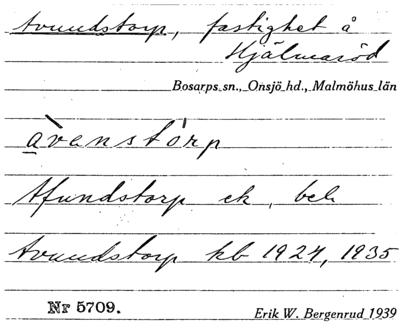 Avundstorp, fastighet å
Hjälmaröd
Bosarps sn., Onsjö hd., Malmöhus län
àvanstórp
Afundstorp ek, beb
Avundstorp kb 1924, 1935
Nr 5709.
Erik W. Bergenrud 1939